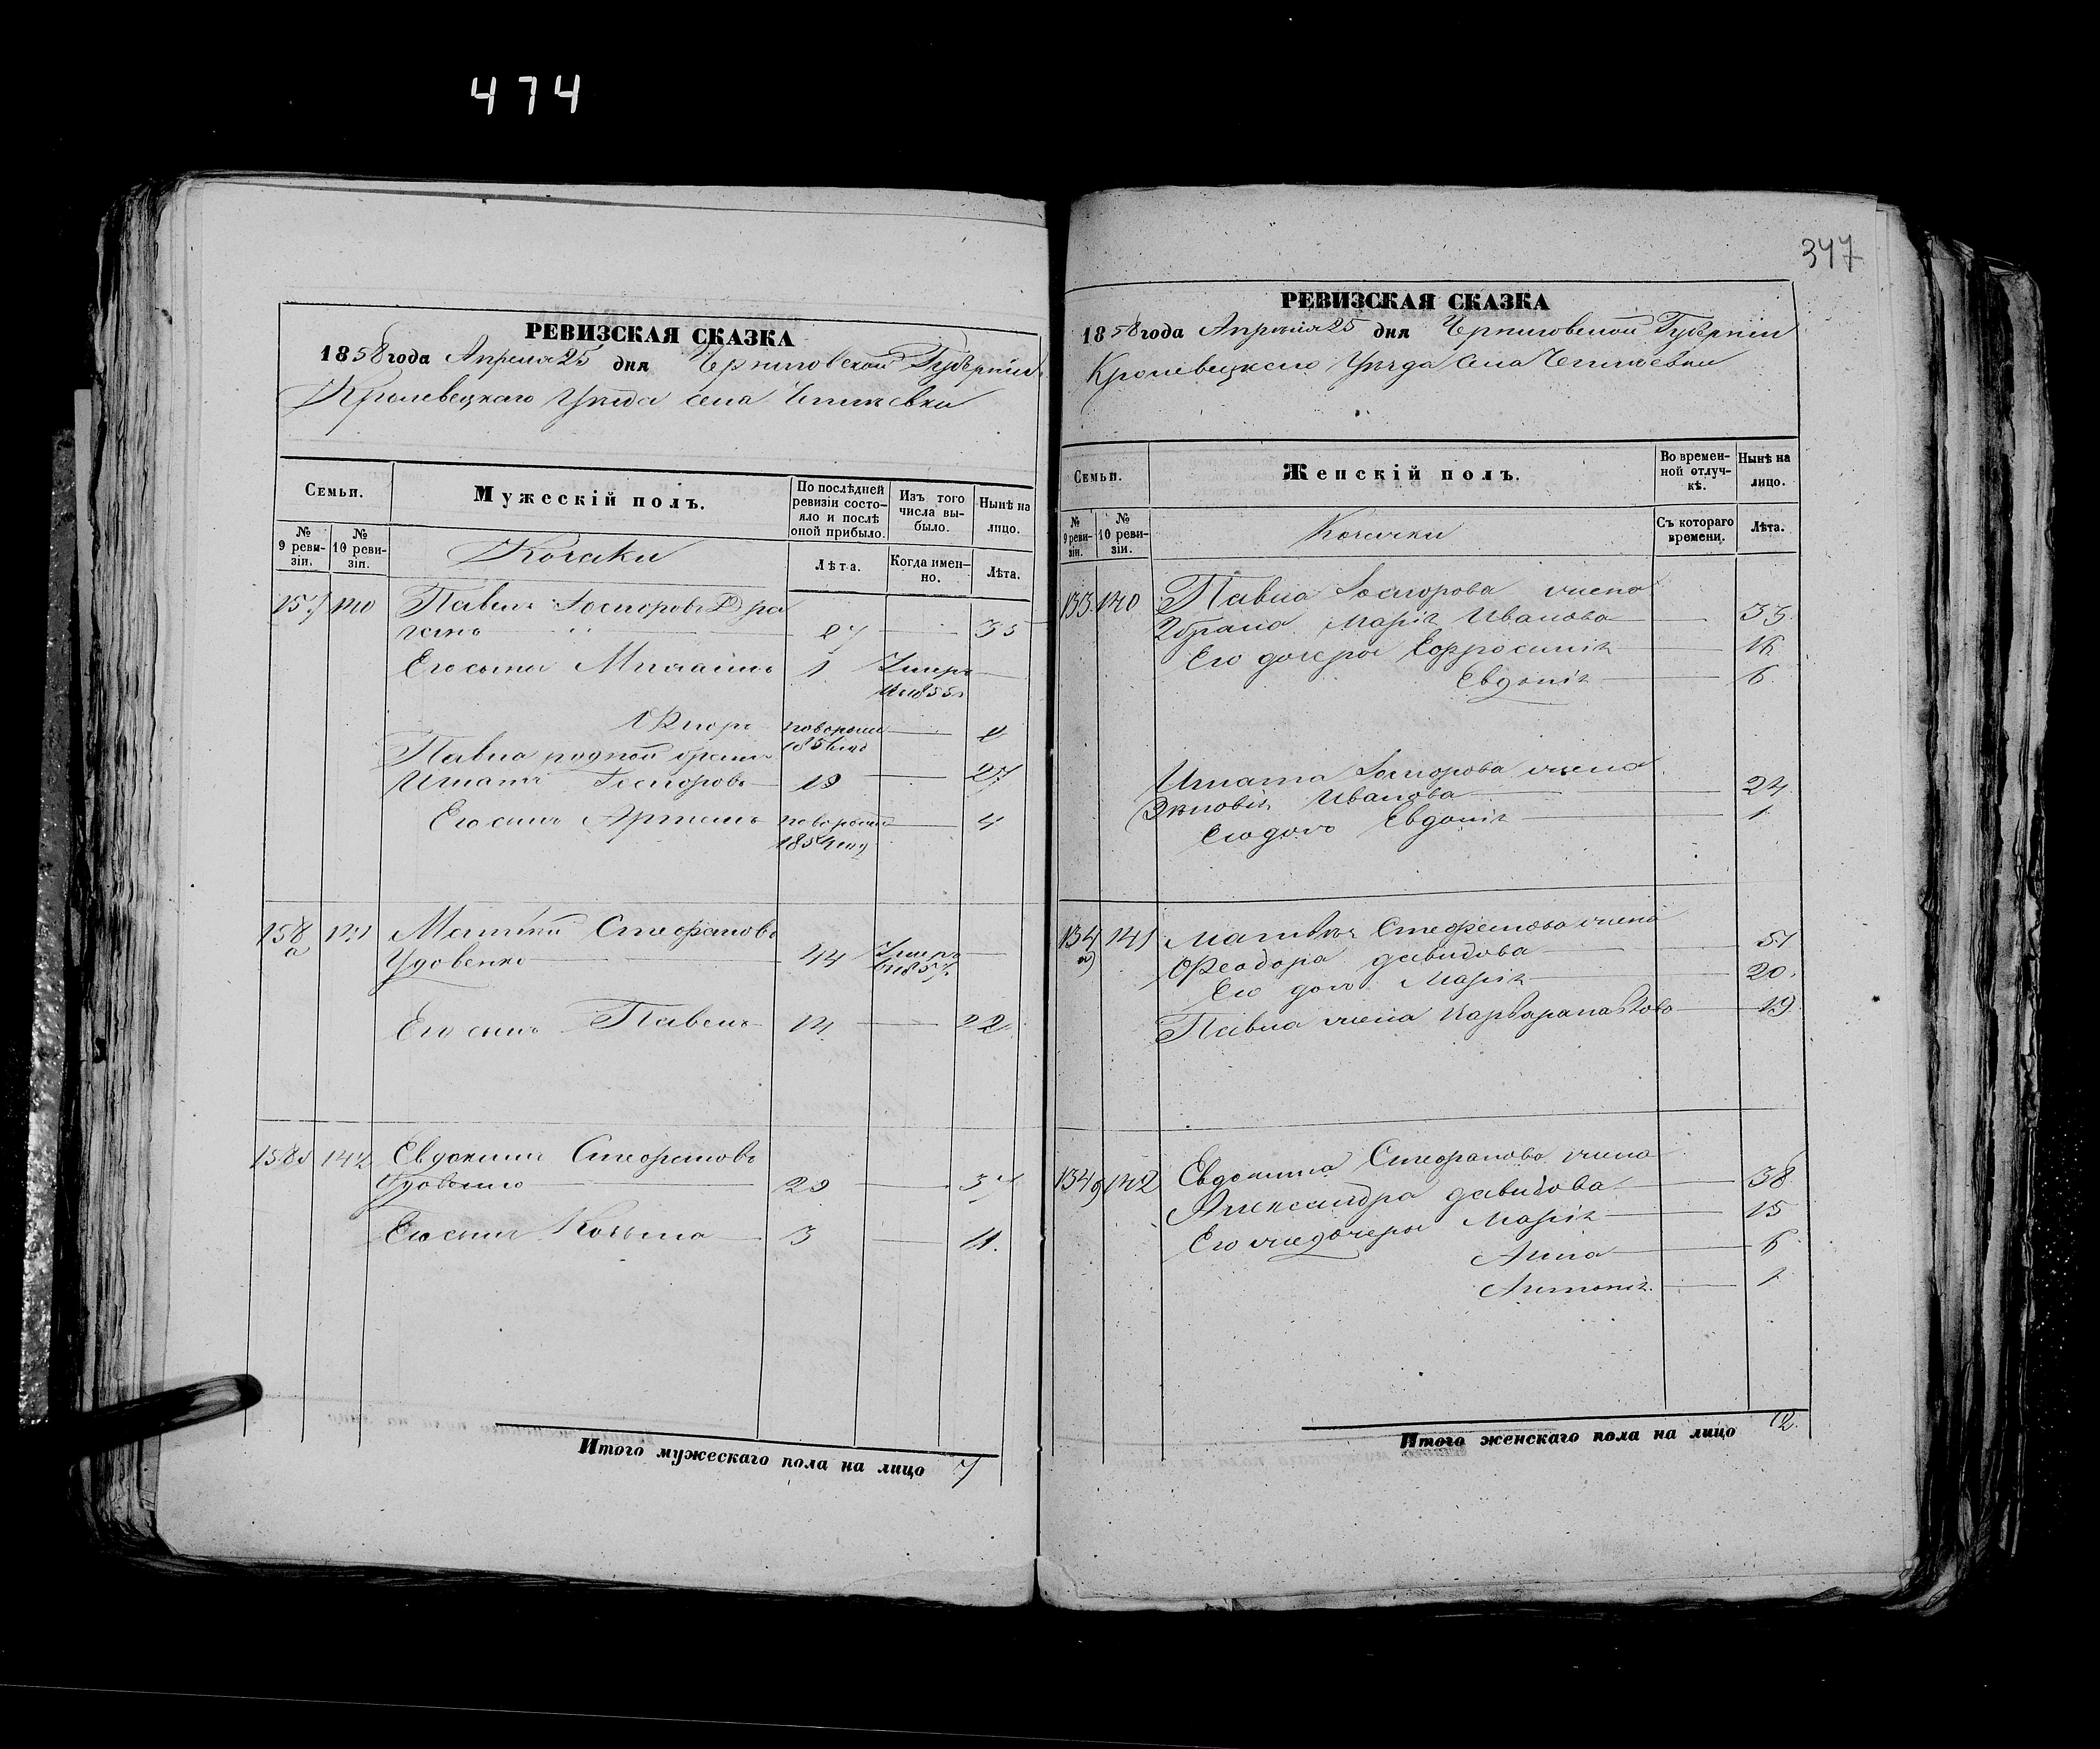 474
347
РЕВИЗСКАЯ СКАЗКА
1858 года Апреля 25 дня Черниговской Губерніи
Кролевецкаго Уѣзда села
Семьи.
Мужескій полъ.
По послѣдней ревизіи состояло и послѣ оной прибыло.
Изъ того числа выбыло.
Нынѣ на лицо.
№ 9 ревизіи.
№ 10 ревизіи.
Козаки
Лѣта.
Когда именно.
Лѣта.
157 140 Павелъ
27 — 35
Его сыны 1 Умеръ
въ 1855
новорожд — 2
Павла родной братъ
Игнатъ 19 — 27
Его сынъ Артемъ новорожд — 4
1854 год
158 а 141 Матвѣй Стефановъ
Удовенко — 44 Умеръ —
въ 1857
Его сынъ Павелъ 14 — 22
158 142 Евдокимъ Стефановъ
Удовенко — 29 — 37
Его сынъ Козьма — 3 — 11.
Итого мужескаго пола на лицо 7
РЕВИЗСКАЯ СКАЗКА
1858 года Апрѣля 25 дня Черниговской Губерніи
Кролевецкаго Уѣзда села
Семьи.
Женскій полъ.
Во временной отлучкѣ.
Нынѣ на лицо.
№ 9 ревизіи.
№ 10 ревизіи.
Козачки
Съ котораго времени.
Лѣта.
133 140 Павла жена
Марія Иванова — 33
Его дочери Ефросинія — 16
Евдокія — 6
Игната жена
Зѣновія Иванова — 24
Его дочь Евдокія — 1
134 141 Матвѣя Стефанова жена
Феодора Давидова — 51
Его дочь Марія — 20.
Павла жена — 19
134 142 Евдокима Стефанова жена
Александра Давидова — 38
Его же дочери Марія — 15
Анна — 6
Антонія. — 1
Итого женскаго пола на лицо 12.